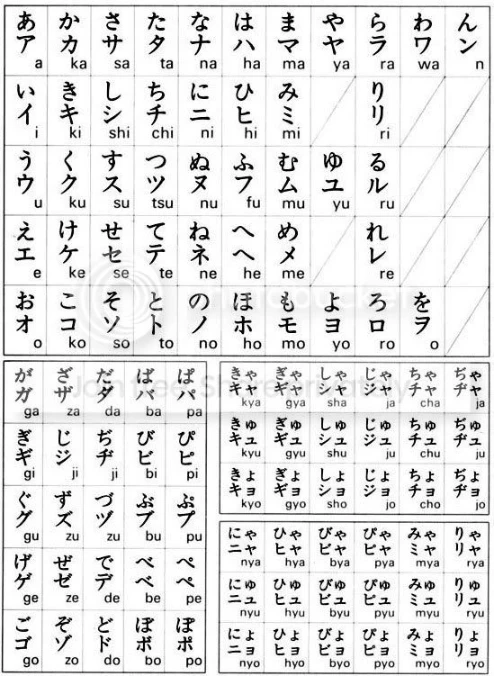 あ か さ た な は ま や ら わ ん
ア カ サ タ ナ ハ マ ヤ ラ ワ ン
a ka sa ta na ha ma ya ra wa n
い き し ち に ひ み り
イ キ シ チ ニ ヒ ミ リ
i ki shi chi ni hi mi ri
う く す つ ぬ ふ む ゆ る
ウ ク ス ツ ヌ フ ム ユ ル
u ku su tsu nu fu mu yu ru
え け せ て ね へ め れ
エ ケ セ テ ネ ヘ メ レ
e ke se te ne he me re
お こ そ と の ほ も よ ろ を
オ コ ソ ト ノ ホ モ ヨ ロ ヲ
o ko so to no ho mo yo ro o
が ざ だ ば ぱ
ガ ザ ダ バ パ
ga za da ba pa
ぎ じ ぢ び ぴ
ギ ジ ヂ ビ ピ
gi ji ji bi pi
ぐ ず づ ぶ ぷ
グ ズ ヅ ブ プ
gu zu zu bu pu
げ ぜ で べ ぺ
ゲ ゼ デ ベ ペ
ge ze de be pe
ご ぞ ど ぼ ぽ
ゴ ゾ ド ボ ポ
go zo do bo po
きゃ ぎゃ しゃ じゃ ちゃ ぢゃ
キャ ギャ シャ ジャ チャ ヂャ
kya gya sha ja cha ja
きゅ ぎゅ しゅ じゅ ちゅ ぢゅ
キュ ギュ シュ ジュ チュ ヂュ
kyu gyu shu ju chu ju
きょ ぎょ しょ じょ ちょ ぢょ
キョ ギョ ショ ジョ チョ ヂョ
kyo gyo sho jo cho jo
にゃ ひゃ びゃ ぴゃ みゃ りゃ
ニャ ヒャ ビャ ピャ ミャ リャ
nya hya bya pya mya rya
にゅ ひゅ びゅ ぴゅ みゅ りゅ
ニュ ヒュ ビュ ピュ ミュ リュ
nyu hyu byu pyu myu ryu
にょ ひょ びょ ぴょ みょ りょ
ニョ ヒョ ビョ ピョ ミョ リョ
nyo hyo byo pyo myo ryo